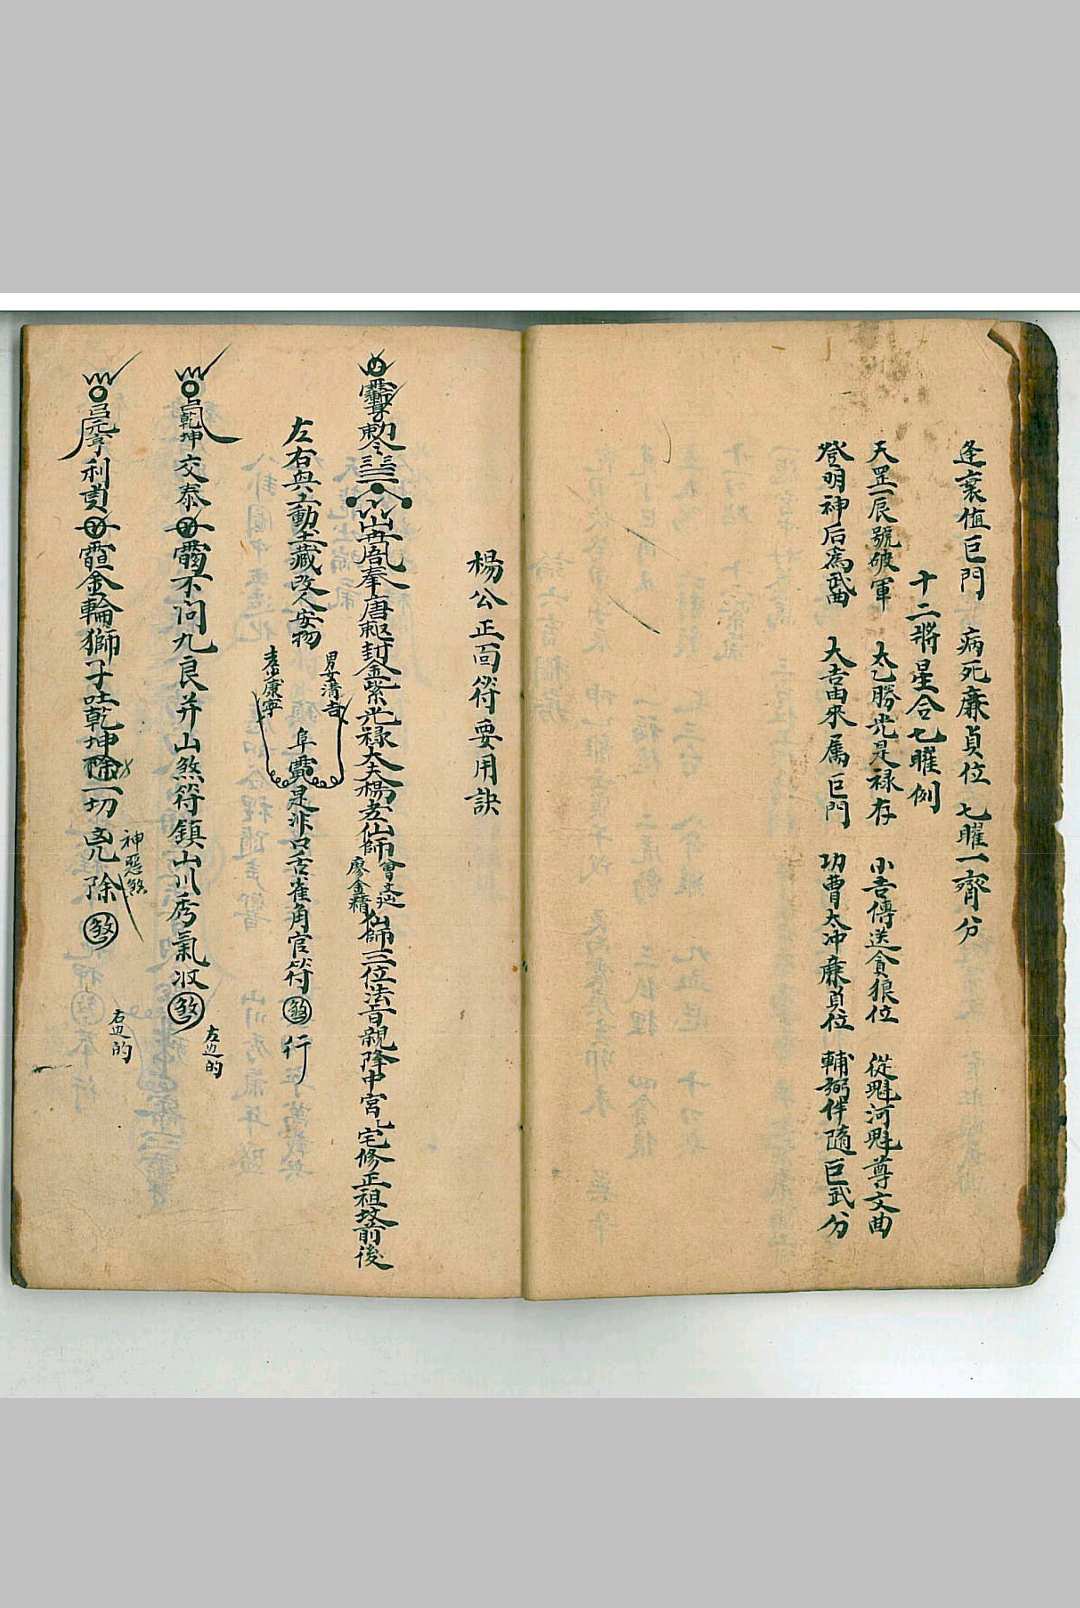 逢衰值巨門 病死廉貞位 七曜一齊分
十二將星合七曜例
天罡一辰號破軍 太乙勝光是禄存 小吉傳送貪狼位 從魁河魁尊文曲
登明神后為武曲 大吉由來属巨門 功曹太冲廉貞位 輔弼伴隨巨武分
楊公正面符要用訣
敕令 奉唐朝封金紫光禄大夫楊老仙師曾文辿廖金精仙師三位法音親降中宫 宅修正祖坟前後
左右與工動土藏改人安物
男女清吉
老少康寧
是非口舌雀角官符 煞 行
乾坤交泰 不问九良并山煞符鎮山川秀氣收 煞
左边的
元亨利貞 金輪獅子吐乾坤 除一切凶 除 煞
神惡煞
右边的